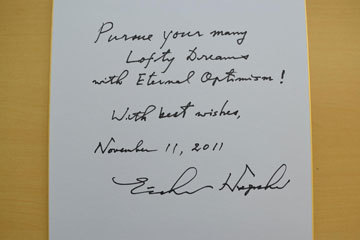 Pursue your many
Lofty Dreams
with Eternal Optimism!
With best wishes,
November 11, 2011